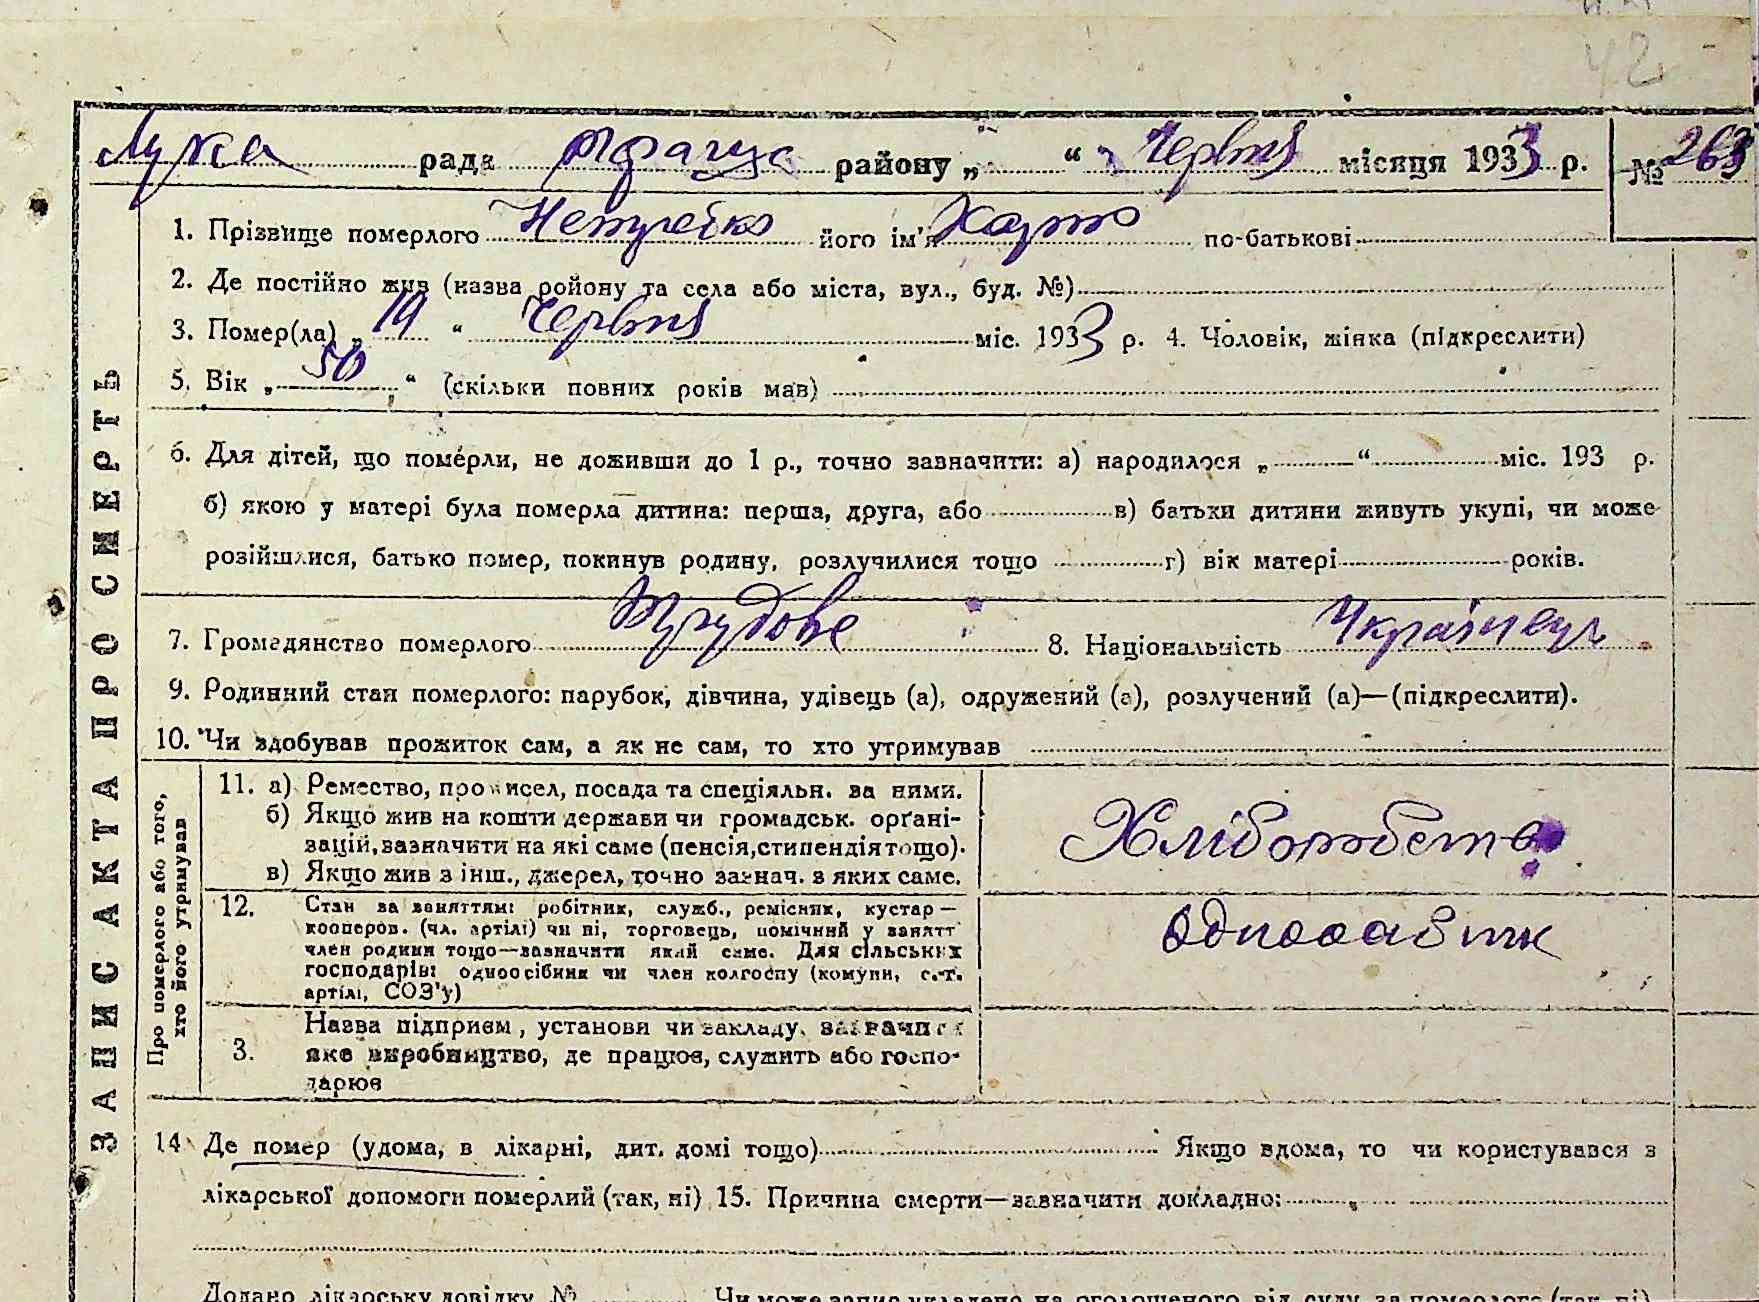 42
Лука рада району „ “ Червня місяця 1933 р. № 263
1. Прізвище померлого його ім'я по-батькові
2. Де постійно жив (назва ройону та села або міста, вул., буд. №)
3. Помер(ла) „19“ Червня міс. 1933 р. 4. Чоловік, жінка (підкреслити)
5. Вік „50“ (скільки повних років мав)
6. Для дітей, що померли, не доживши до 1 р., точно зазначити: а) народилося „ “ міс. 193 р.
б) якою у матері була померла дитина: перша, друга, або в) батьхи дитини живуть укупі, чи може
розійшлися, батько помер, покинув родину, розлучилися тощо г) вік матері років.
7. Громадянство померлого Трудове 8. Національність Українец
9. Родинний стан померлого: парубок, дівчина, удівець (а), одружений (а), розлучений (а)—(підкреслити).
10. Чи здобував прожиток сам, а як не сам, то хто утримував
ЗАПИС АКТА ПРО СМЕРТЬ
Про померлого або того, хто його утримував
11. а) Ремество, промисел, посада та спеціяльн. за ними.
б) Якщо жив на кошти держави чи громадськ. орґані-
зацій, зазначити на які саме (пенсія, стипендія тощо).
в) Якщо жив з інш., джерел, точно зазнач. з яких саме.
Хліборобство
12. Стан за заняттям: робітник, служб., ремісник, кустар—
кооперов. (чл. артілі) чи ні, торговець, помічний у занятт
член родини тощо—зазначити який саме. Для сільських
господарів: одноосібник чи член колгоспу (комуни, с.-г.
артілі, СОЗ'у)
3. Назва підприєм, установи чи закладу, зазначити
яке виробництво, де працює, служить або госпо-
дарює
14 Де помер (удома, в лікарні, дит. домі тощо) Якщо вдома, то чи користувався з
лікарської допомоги померлий (так, ні) 15. Причина смерти—зазначити докладно:
Додано лікарську довідку № Чи може запис укладено на оголошеного від суду за померлого (так, ні)